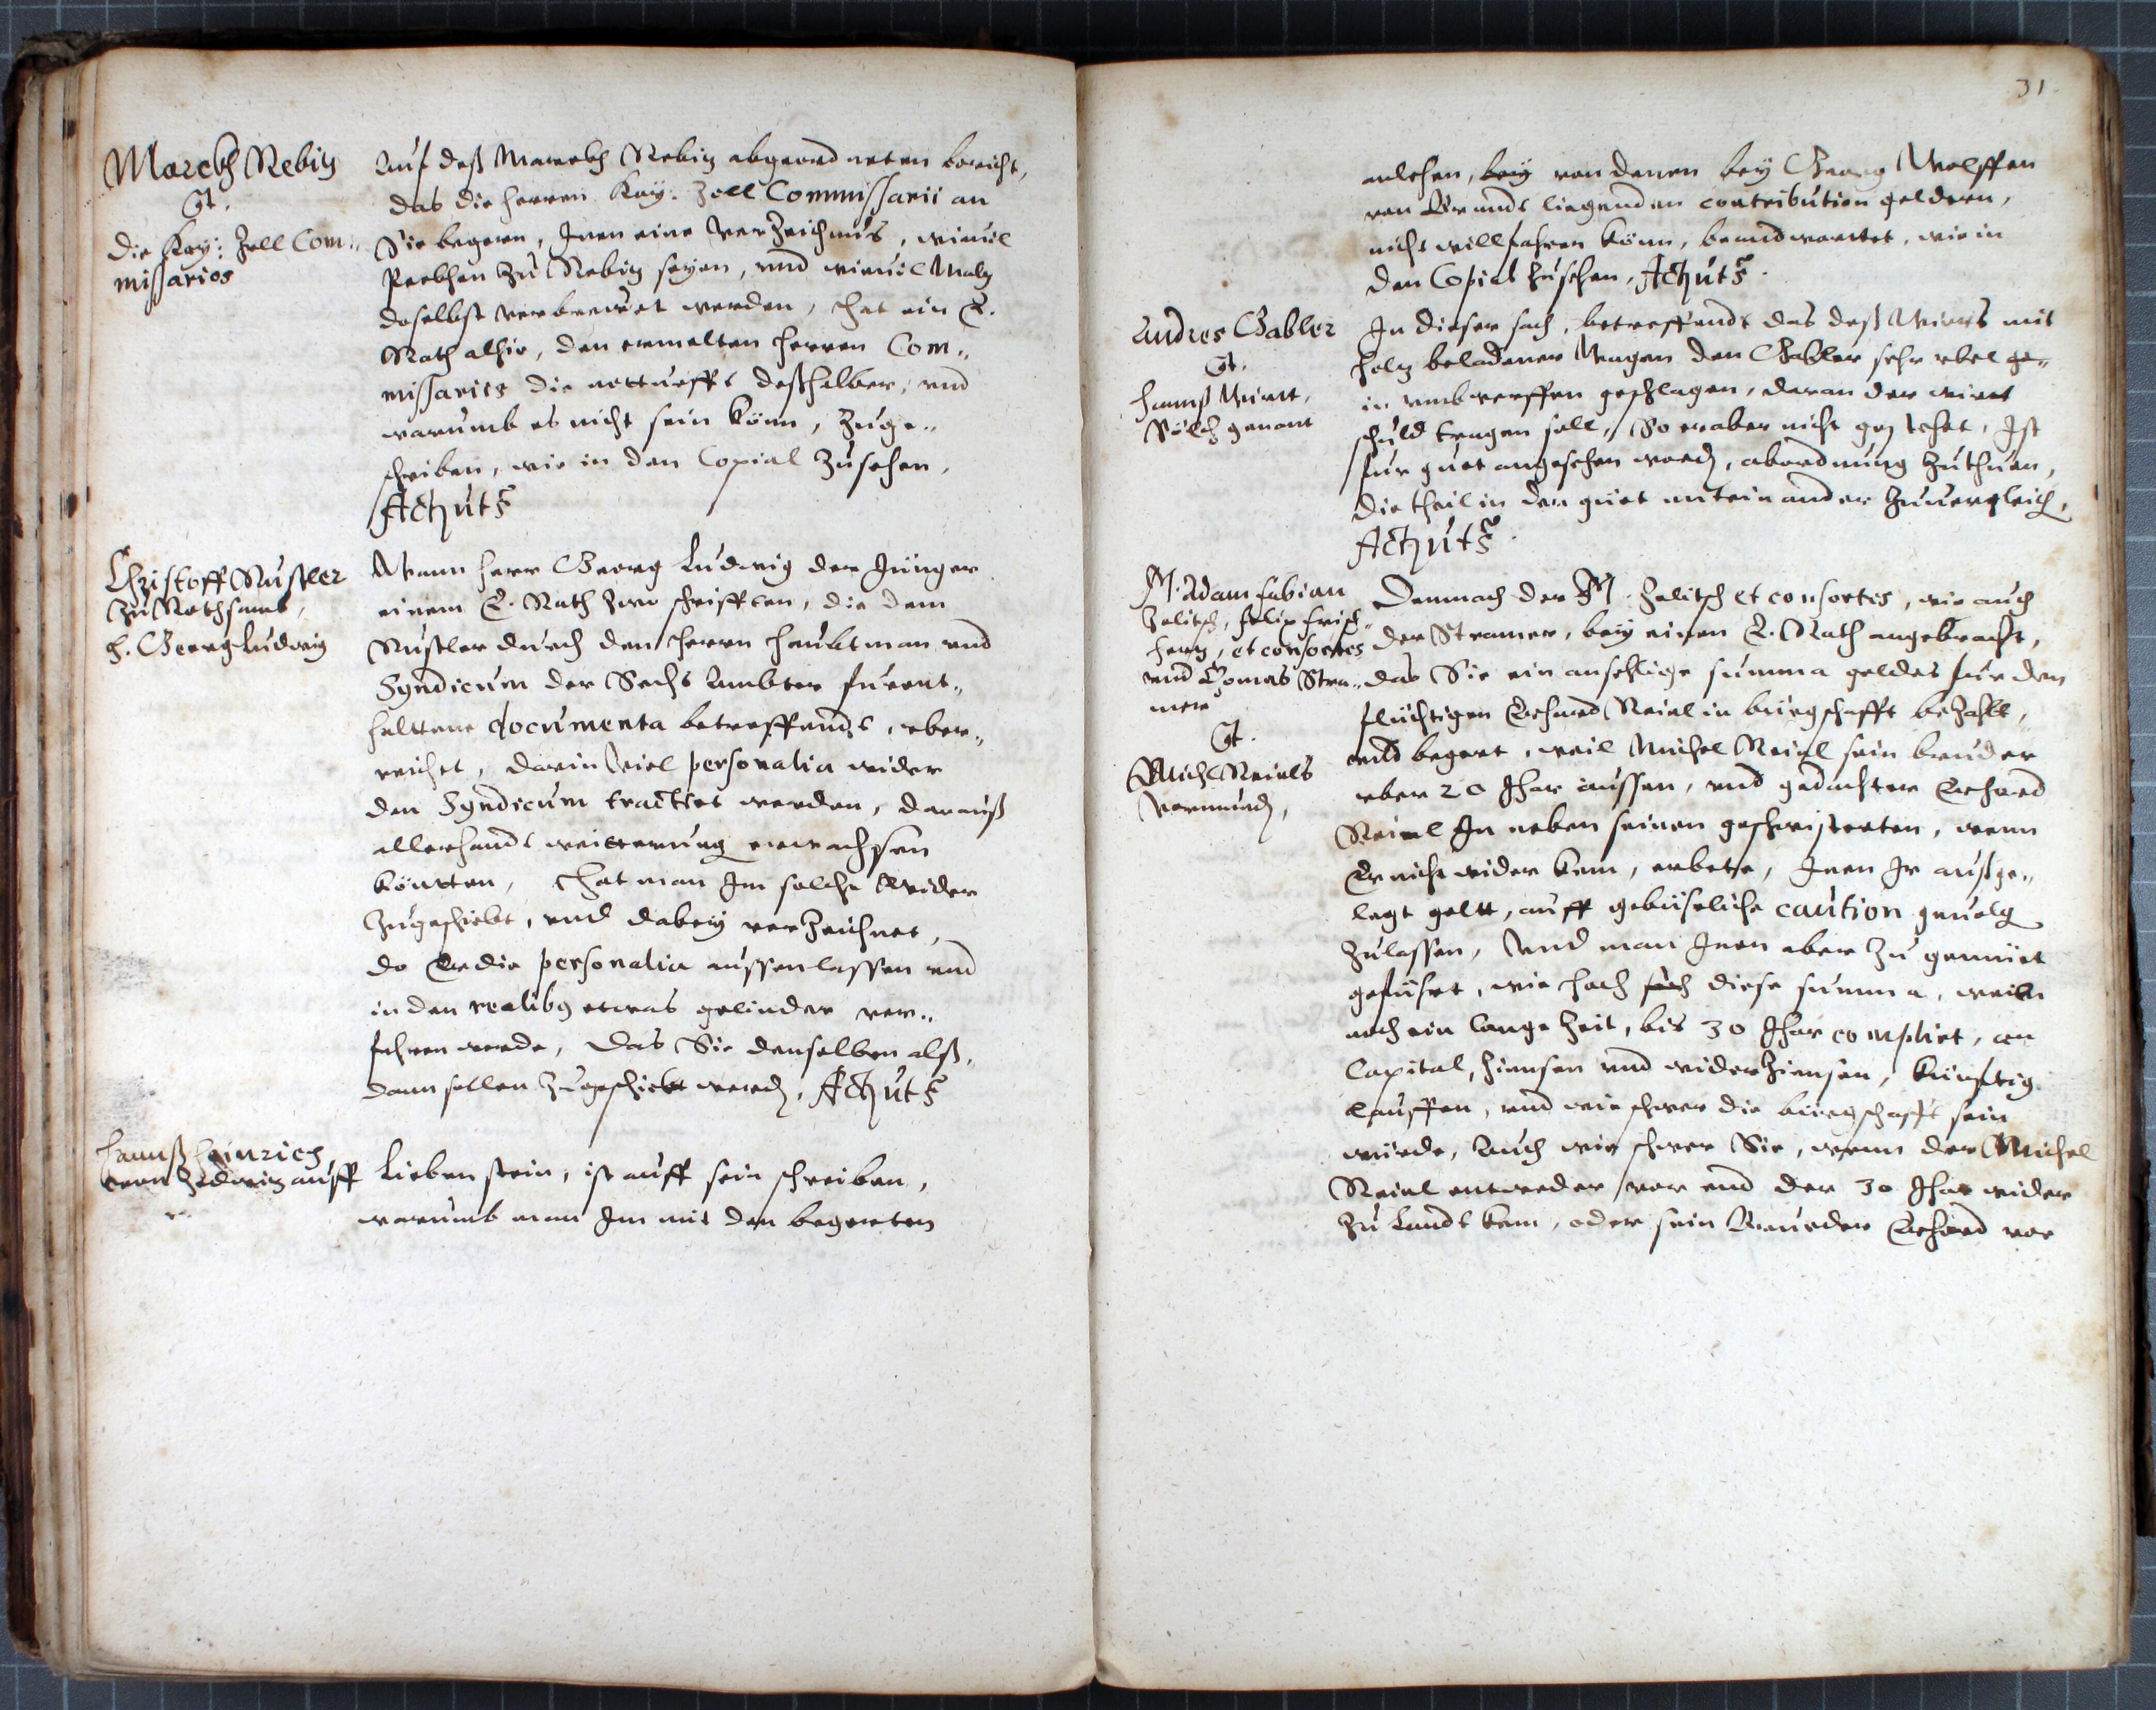 Marckh Redwitz
Ct.
die Kay: Zoll Com=
missarios
Auf deß Marckh Redwitz abgeordneten bericht,
das die herren Kay: Zoll Commissarii an
Sie begern, Inen eine Verzeichnus, wieuil
Preühen zu Redwitz seyen, vnd wieuil Maltz
daselbst verbreuet werden, hat ein E.
Rath alhie, den ermelten herren Com=
missaries die notturfft deßhalber, vnd
warumb es nicht sein könn, Zuge=
schriben, wie in den Copial Zusehen,
Act: ut s
Christoff Nusler
zu Rothsamb,
h. Georg Ludwig
Wann herr Georg Ludwig der Jünger
einem E. Rath zwo schrifften, die dem
Nusler durch den herrn haubtman vnd
Syndicum der Sechs Ambter furent=
haltene documenta betreffendt, vber=
reichet, darin Viel personalia wider
den Syndicum tractiret werden, darauß
allerhandt weitterung erwachsen
könten, hat man Im solche wider
Zugeschickt, vnd dabey verzeichnet,
do Er die personalia aussenlassen vnd
in den realibus etwas gelinder ver=
fahren werde, das Sie denselben alß,
dann sollen Zugeschickt werden, Act: ut s
Hannß Heinrich
von Zedwitz auff
Liebenstein, ist auff sein schreiben,
warumb man Im mit den begerten
31
anlehen, bey von denen bey Georg Wolffen
von Brandt liegenden contribution geldern,
nicht willfahren könn, beandwortet, wie in
den Copial Zusehen, Act: ut s.
Andres Gabler
Ct.
Hannß Wirtt,
Sölch genant
In dieser sach, betreffendt das deß Wirts mit
holtz beladener Wagen den Gabler sehr vbel ge=
in vmbwerffen geschlagen, daran der wirt
schuld tragen soll, So er aber nicht gestehet, Ist
für guet angesehen worden, abordnung Zuthuen,
die theil in der guet mitein ander Zuuergleich,
Act: ut s.
M. Adam Fabian
Zölitsch, Felix Frisch=
hertz, et consortes
vnd Thomas Stra=
mer
Ct.
Michl Reinls
Vormund,
Demnach der M. Zelitsch et consortes, wie auch
der Stramer, bey einen E. Rath angebracht,
das Sie ein ansehlige summa geldes fur den
flüchtigen Erhard Reinl in bürgschafft bezahlt,
vnd begert, weil Michel Reinl sein bruder
vber 20 Jhar aussen, vnd gedachter Erhard
Reinl In neben seinen geschwisterten, wenn
Er nicht wider kem, erbete, Inen Ir außge=
legt geltt, auff gebürliche caution geuolg
Zulassen, Vnd man Inen aber Zu gemüet
geführt, wie hoch sich diese summa, weiln
noch ein lange Zeit, bis 30 Jhar complirt, an
Capital, Zinnsen vnd widerzinnsen, künfftig
lauffen, vnd wie schwer die bürgschafft sein
würde, Auch wie schwer Sie, wenn der Michel
Reinl entweder vor end der 30 Jhar wider
Zu landt kem, oder sein Brueder Erhard vor